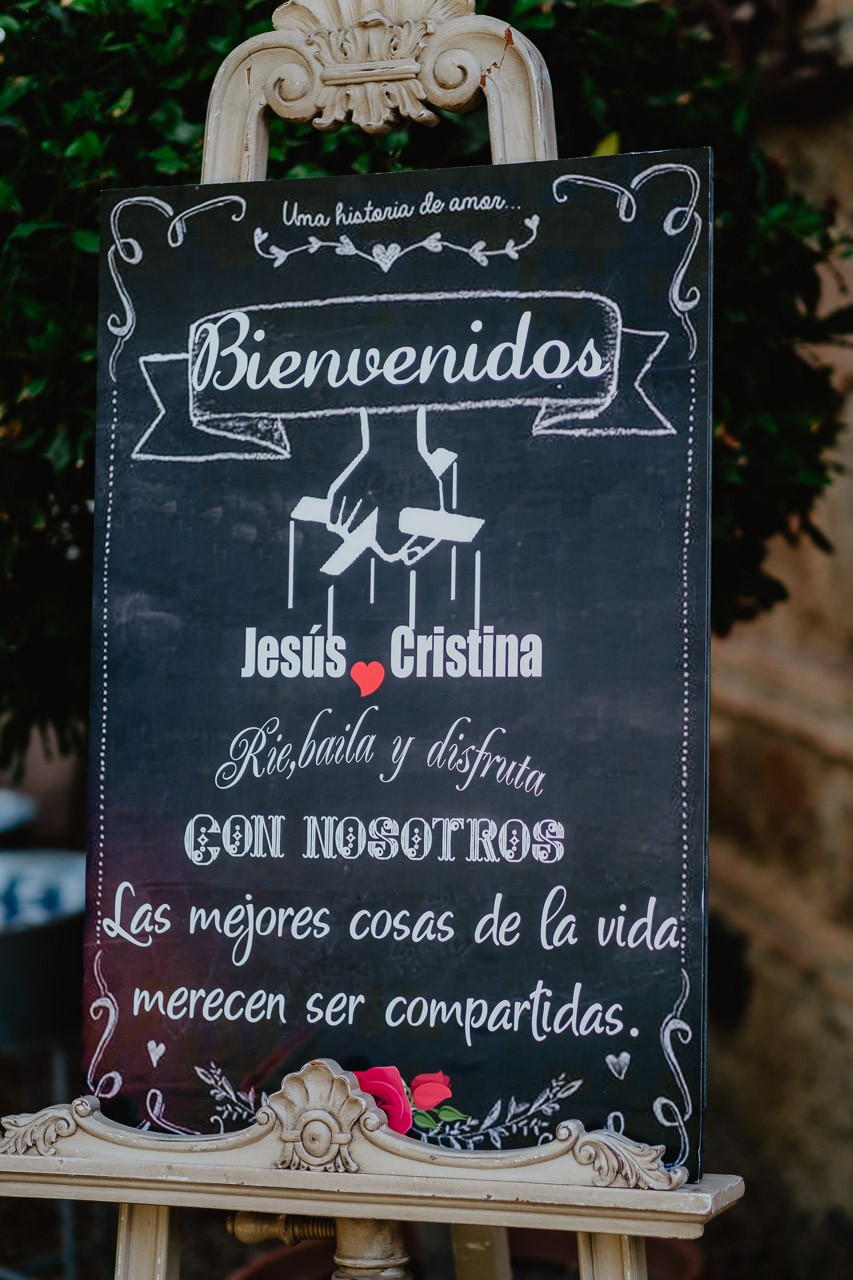 Una historia de amor...
Bienvenidos
Jesús Cristina
Rie, baila y disfruta
CON NOSOTROS
Las mejores cosas de la vida
merecen ser compartidas.